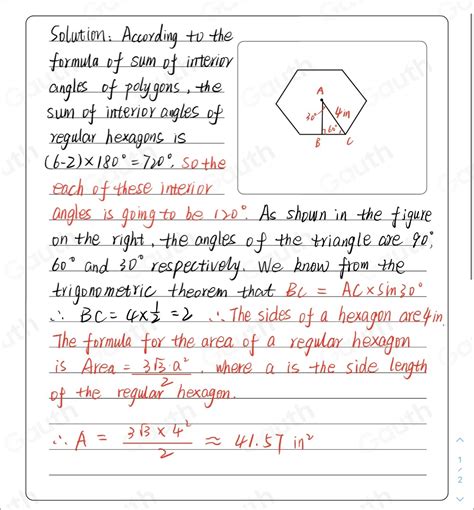 Solution: According to the
formula of sum of interior
angles of polygons, the
sum of interior angles of
regular hexagons is
(6-2)×180°=720°. So the
each of these interior
angles is going to be 120°. As shown in the figure
on the right, the angles of the triangle are 90°,
60° and 30° respectively. We know from the
trigonometric theorem that BC = AC×sin30°
∴ BC = 4×1/2 = 2 ∴ The sides of a hexagon are 4in.
The formula for the area of a regular hexagon
is Area = 3√3·a²/2, where a is the side length
of the regular hexagon.
∴ A = 3√3×4²/2 ≈ 41.57 in²
A
30°
4in
60°
B
C
1
/
2
Gauth